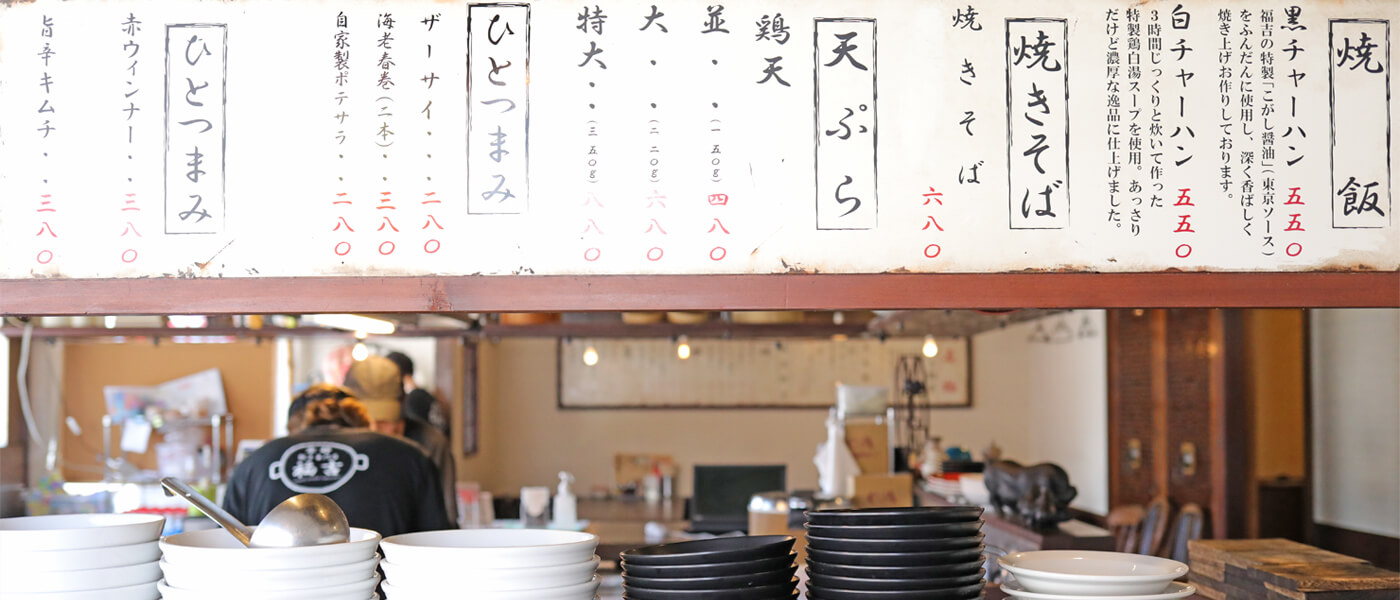 焼飯
黒チャーハン 五五〇
福吉の特製「こがし醤油」(東京ソース)
をふんだんに使用し、深く香ばしく
焼き上げお作りしております。
白チャーハン 五五〇
3時間じっくりと炊いて作った
特製鶏白湯スープを使用。あっさり
だけど濃厚な逸品に仕上げました。
焼きそば
焼きそば 六八〇
天ぷら
鶏天
並・・(一五〇g)四八〇
大・・(二二〇g)六八〇
特大・・(三五〇g)八八〇
ひとつまみ
ザーサイ・・二八〇
海老春巻(二本)・三八〇
自家製ポテサラ・・二八〇
ひとつまみ
赤ウィンナー・・三八〇
旨辛キムチ・・三八〇
福吉